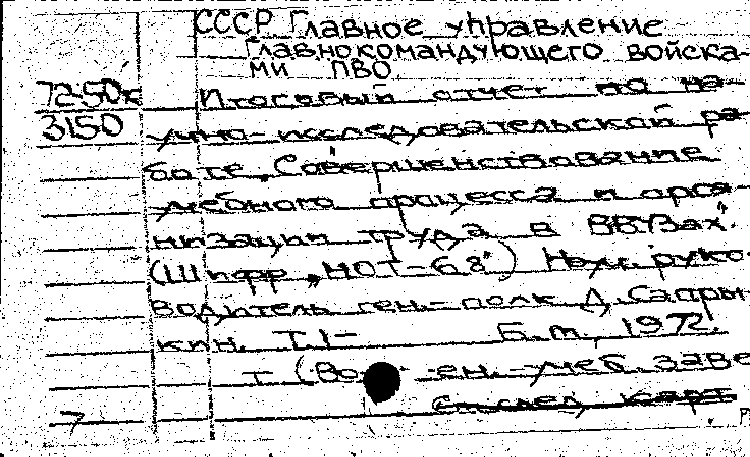 СССР Главное управление
Главнокомандующего войска-
ми ПВО
7250к Итоговый отчет по на-
3150 учно-исследовательской ра-
боте „Совершенствование
учебного процесса и орга-
низации труда в ВВУЗах".
(Шифр „НОТ-68") Науч. руко-
водитель ген.-полк Д. Сапры-
кин. Т.1- Б.м., 1972.
т (Во ен.-учеб. заве
См. след. карт
7